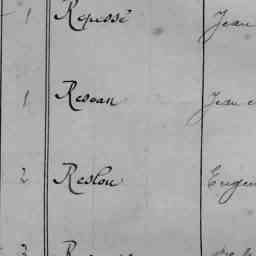 1 Repessé Jean
1 Resoan Jean
2 Reslou Eugen
3